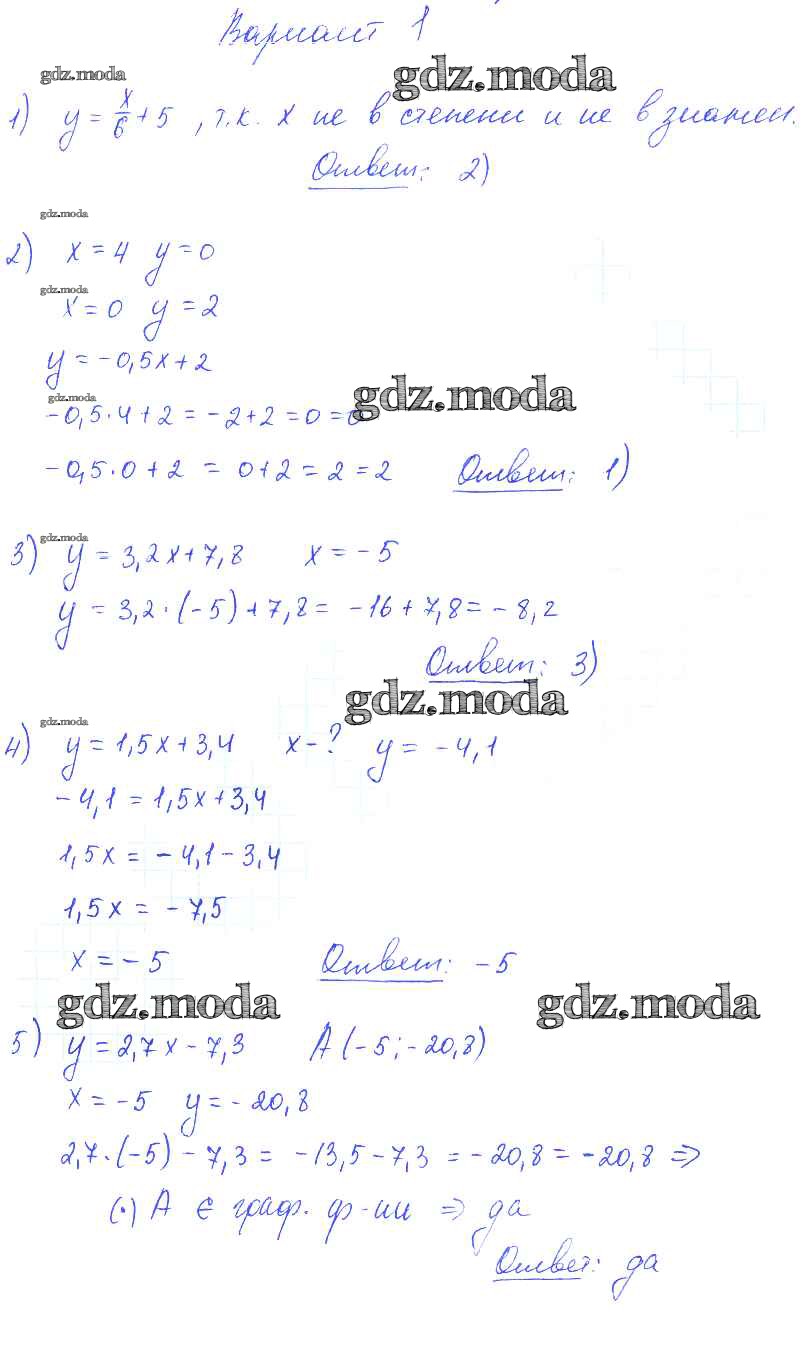 Вариант 1
gdz.moda gdz.moda
1) y = x/6 + 5 , т.к. x не в степени и не в знамен.
Ответ: 2)
gdz.moda
2) x = 4 y = 0
gdz.moda
x = 0 y = 2
y = -0,5x + 2
gdz.moda gdz.moda
-0,5·4 + 2 = -2+2 = 0 = 0
-0,5·0 + 2 = 0+2 = 2 = 2 Ответ: 1)
gdz.moda
3) y = 3,2x + 7,8 x = -5
y = 3,2·(-5) + 7,8 = -16 + 7,8 = -8,2
Ответ: 3)
gdz.moda
gdz.moda
4) y = 1,5x + 3,4 x - ? y = -4,1
-4,1 = 1,5x + 3,4
1,5x = -4,1 - 3,4
1,5x = -7,5
x = -5 Ответ: -5
gdz.moda gdz.moda
5) y = 2,7x - 7,3 A (-5; -20,8)
x = -5 y = -20,8
2,7·(-5) - 7,3 = -13,5 - 7,3 = -20,8 = -20,8 =>
(·) A ∈ граф. ф-ии => да
Ответ: да